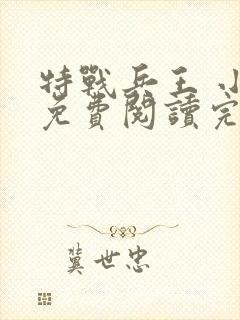 特戰兵王 小
免費閱讀完
冀世忠